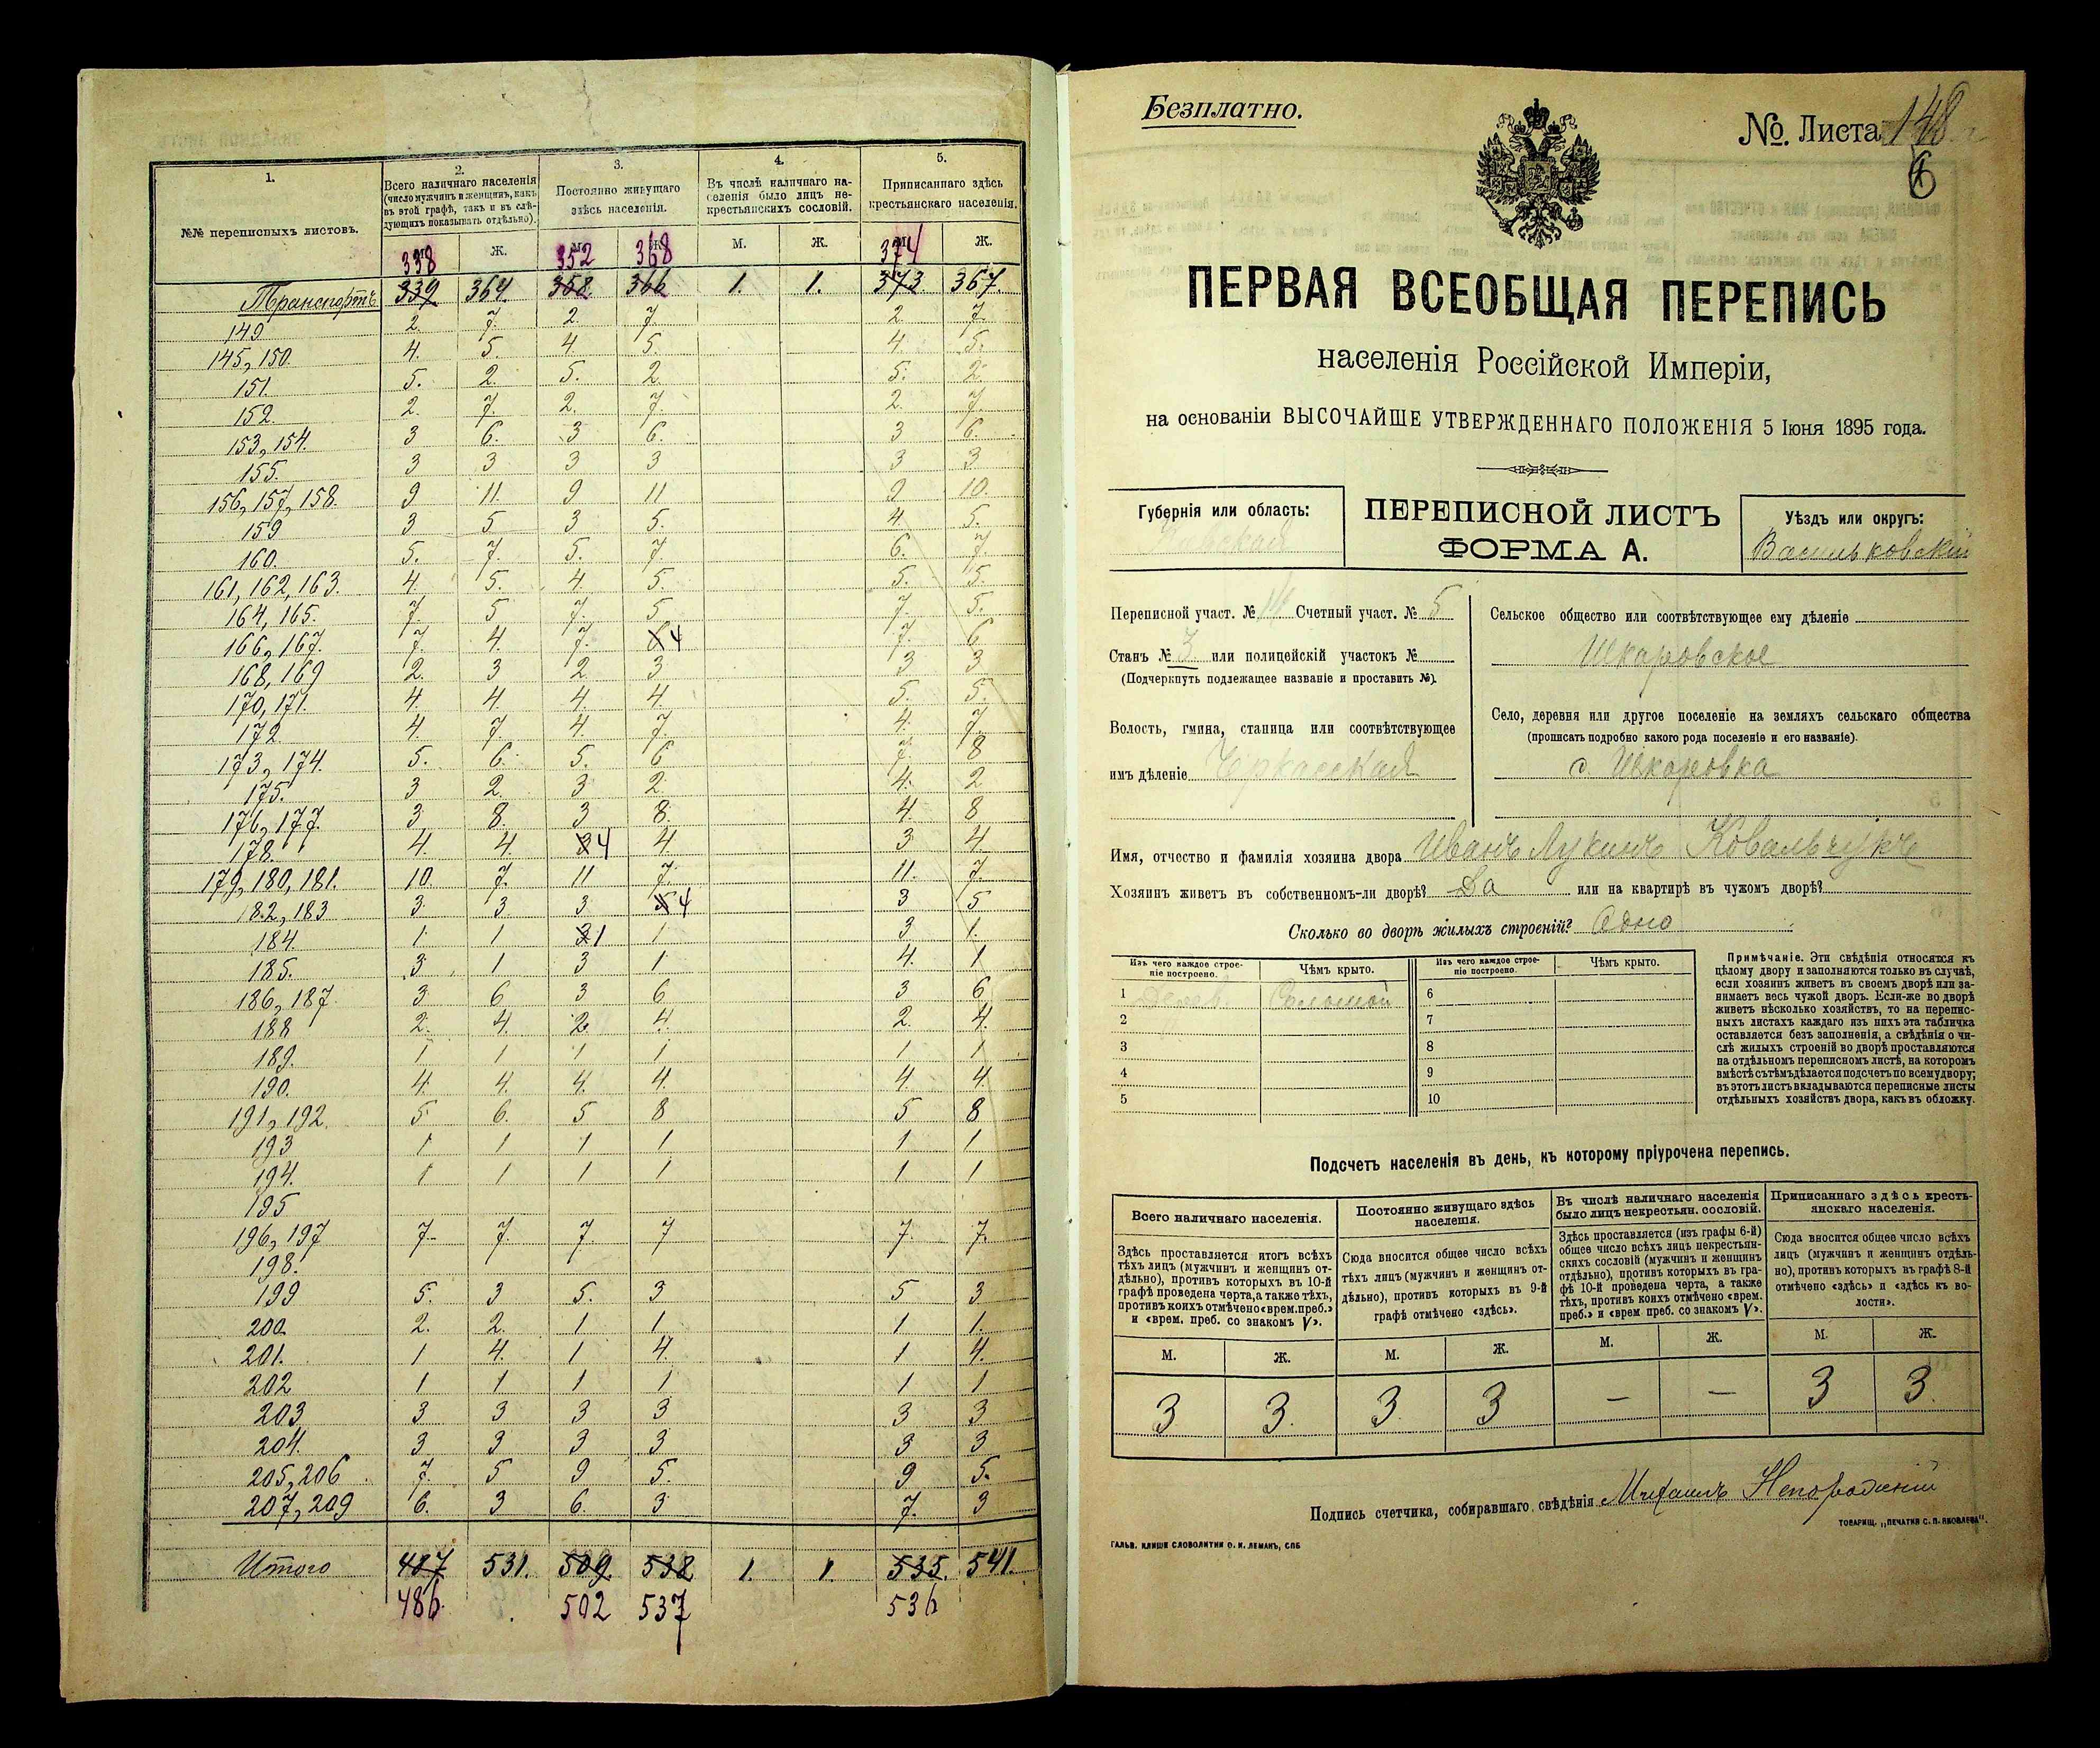 1.
2.
3.
4.
5.
№№ переписныхъ листовъ.
Всего наличнаго населенія
(число мужчинъ и женщинъ, какъ
въ этой графѣ, такъ и въ слѣ-
дующихъ показывать отдѣльно).
Постоянно живущаго
здѣсь населенія.
Въ числѣ наличнаго на-
селенія было лицъ не-
крестьянскихъ сословій.
Приписаннаго здѣсь
крестьянскаго населенія.
Ж. М. Ж. Ж.
338 352 368 374
Транспортъ 339 364. 358 366 1. 1. 373 367.
149 2. 7. 2. 7. 2. 7.
145, 150. 4. 5. 4. 5. 4. 5.
151. 5. 2. 5. 2. 5. 2.
152. 2. 7. 2. 7. 2. 7.
153, 154. 3 6. 3 6. 3 6.
155. 3 3 3 3 3 3
156, 157, 158. 9 11. 9 11 9 10.
159 3 5 3 5. 4 5.
160. 5. 7. 5. 7. 6. 7.
161, 162, 163. 4. 5. 4 5. 5. 5.
164, 165. 7. 5 7. 5 7. 5.
166, 167. 7. 4. 7. 4 7. 6
168, 169 2. 3 2. 3 3 3
170, 171. 4. 4. 4. 4. 5. 5.
172 4. 7. 4. 7. 4. 7
173, 174. 5. 6. 5. 6 7. 8
175. 3 2. 3 2. 4. 2
176, 177. 3 8. 3 8. 4. 8
178. 4. 4. 34 4. 3 4.
179, 180, 181. 10. 7. 11 7. 11. 7.
182, 183 3. 3. 3 54 3 5
184. 1. 1 31 1 3 1.
185. 3 1 3 1 4. 1
186, 187. 3. 6 3 6 3 6
188 2. 4. 2. 4. 2. 4.
189. 1 1 1 1 1 1
190. 4. 4. 4. 4. 4. 4
191, 192. 5 6. 5 8 5 8
193 1 1 1 1 1 1
194. 1 1 1 1 1 1
195
196, 197 7. 7. 7. 7 7. 7.
198.
199 5. 3 5. 3 5 3
200. 2. 2. 1 1 1 1.
201. 1 4. 1 4. 1 4.
202 1 1 1 1 1 1
203 3 3 3 3 3 3
204. 3 3 3 3 3 3
205, 206 7. 5 9 5. 9 5.
207, 209 6. 3 6. 3 7. 3
Итого 487 531. 509. 538 1. 1. 535. 541.
486. 502 537 536
Безплатно.
№. Листа 148
ПЕРВАЯ ВСЕОБЩАЯ ПЕРЕПИСЬ
населенія Россійской Имперіи,
на основаніи ВЫСОЧАЙШЕ УТВЕРЖДЕННАГО ПОЛОЖЕНІЯ 5 Іюня 1895 года.
Губернія или область:
Кіевская
ПЕРЕПИСНОЙ ЛИСТЪ
ФОРМА А.
Уѣздъ или округъ:
Васильковскій
Переписной участ. № 14 Счетный участ. № 5
Станъ № 3 или полицейскій участокъ №
(Подчеркнуть подлежащее названіе и проставить №).
Волость, гмина, станица или соотвѣтствующее
имъ дѣленіе Черкасская
Сельское общество или соотвѣтствующее ему дѣленіе
Шкаровское
Село, деревня или другое поселеніе на земляхъ сельскаго общества
(прописать подробно какого рода поселеніе и его названіе).
с. Шкаровка
Имя, отчество и фамилія хозяина двора Иванъ Лукинъ Ковальчукъ
Хозяинъ живетъ въ собственномъ-ли дворѣ? Да или на квартирѣ въ чужомъ дворѣ?
Сколько во дворѣ жилыхъ строеній? Одно
Изъ чего каждое строе-
ніе построено.
Чѣмъ крыто.
Изъ чего каждое строе-
ніе построено.
Чѣмъ крыто.
1 Дерев. Соломой 6
2 7
3 8
4 9
5 10
Примѣчаніе. Эти свѣдѣнія относятся къ
цѣлому двору и заполняются только въ случаѣ,
если хозяинъ живетъ въ своемъ дворѣ или за-
нимаетъ весь чужой дворъ. Если-же во дворѣ
живетъ нѣсколько хозяйствъ, то на перепис-
ныхъ листахъ каждаго изъ нихъ эта табличка
оставляется безъ заполненія, а свѣдѣнія о чи-
слѣ жилыхъ строеній во дворѣ проставляются
на отдѣльномъ переписномъ листѣ, на которомъ
вмѣстѣ съ тѣмъ дѣлается подсчетъ по всему двору;
въ этотъ листъ вкладываются переписные листы
отдѣльныхъ хозяйствъ двора, какъ въ обложку.
Подсчетъ населенія въ день, къ которому пріурочена перепись.
Всего наличнаго населенія.
Здѣсь проставляется итогъ всѣхъ
тѣхъ лицъ (мужчинъ и женщинъ от-
дѣльно), противъ которыхъ въ 10-й
графѣ проведена черта, а также тѣхъ,
противъ коихъ отмѣчено «врем. преб.»
и «врем. преб. со знакомъ V».
Постоянно живущаго здѣсь
населенія.
Сюда вносится общее число всѣхъ
тѣхъ лицъ (мужчинъ и женщинъ от-
дѣльно), противъ которыхъ въ 9-й
графѣ отмѣчено «здѣсь».
Въ числѣ наличнаго населенія
было лицъ некрестьян. сословій.
Здѣсь проставляется (изъ графы 6-й)
общее число всѣхъ лицъ некрестьян-
скихъ сословій (мужчинъ и женщинъ
отдѣльно), противъ которыхъ въ гра-
фѣ 10-й проведена черта, а также
тѣхъ, противъ коихъ отмѣчено «врем.
преб.» и «врем преб. со знакомъ V».
Приписаннаго здѣсь кресть-
янскаго населенія.
Сюда вносится общее число всѣхъ
лицъ (мужчинъ и женщинъ отдѣль-
но), противъ которыхъ въ графѣ 8-й
отмѣчено «здѣсь» и «здѣсь къ во-
лости».
М. Ж. М. Ж. М. Ж. М. Ж.
3 3. 3. 3 — — 3 3.
Подпись счетчика, собиравшаго свѣдѣнія Михаилъ
ТОВАРИЩ. „ПЕЧАТНЯ С. П. ЯКОВЛЕВА“.
ГАЛЬВ. КЛИШЕ СЛОВОЛИТНИ О. И. ЛЕМАНЪ, СПБ